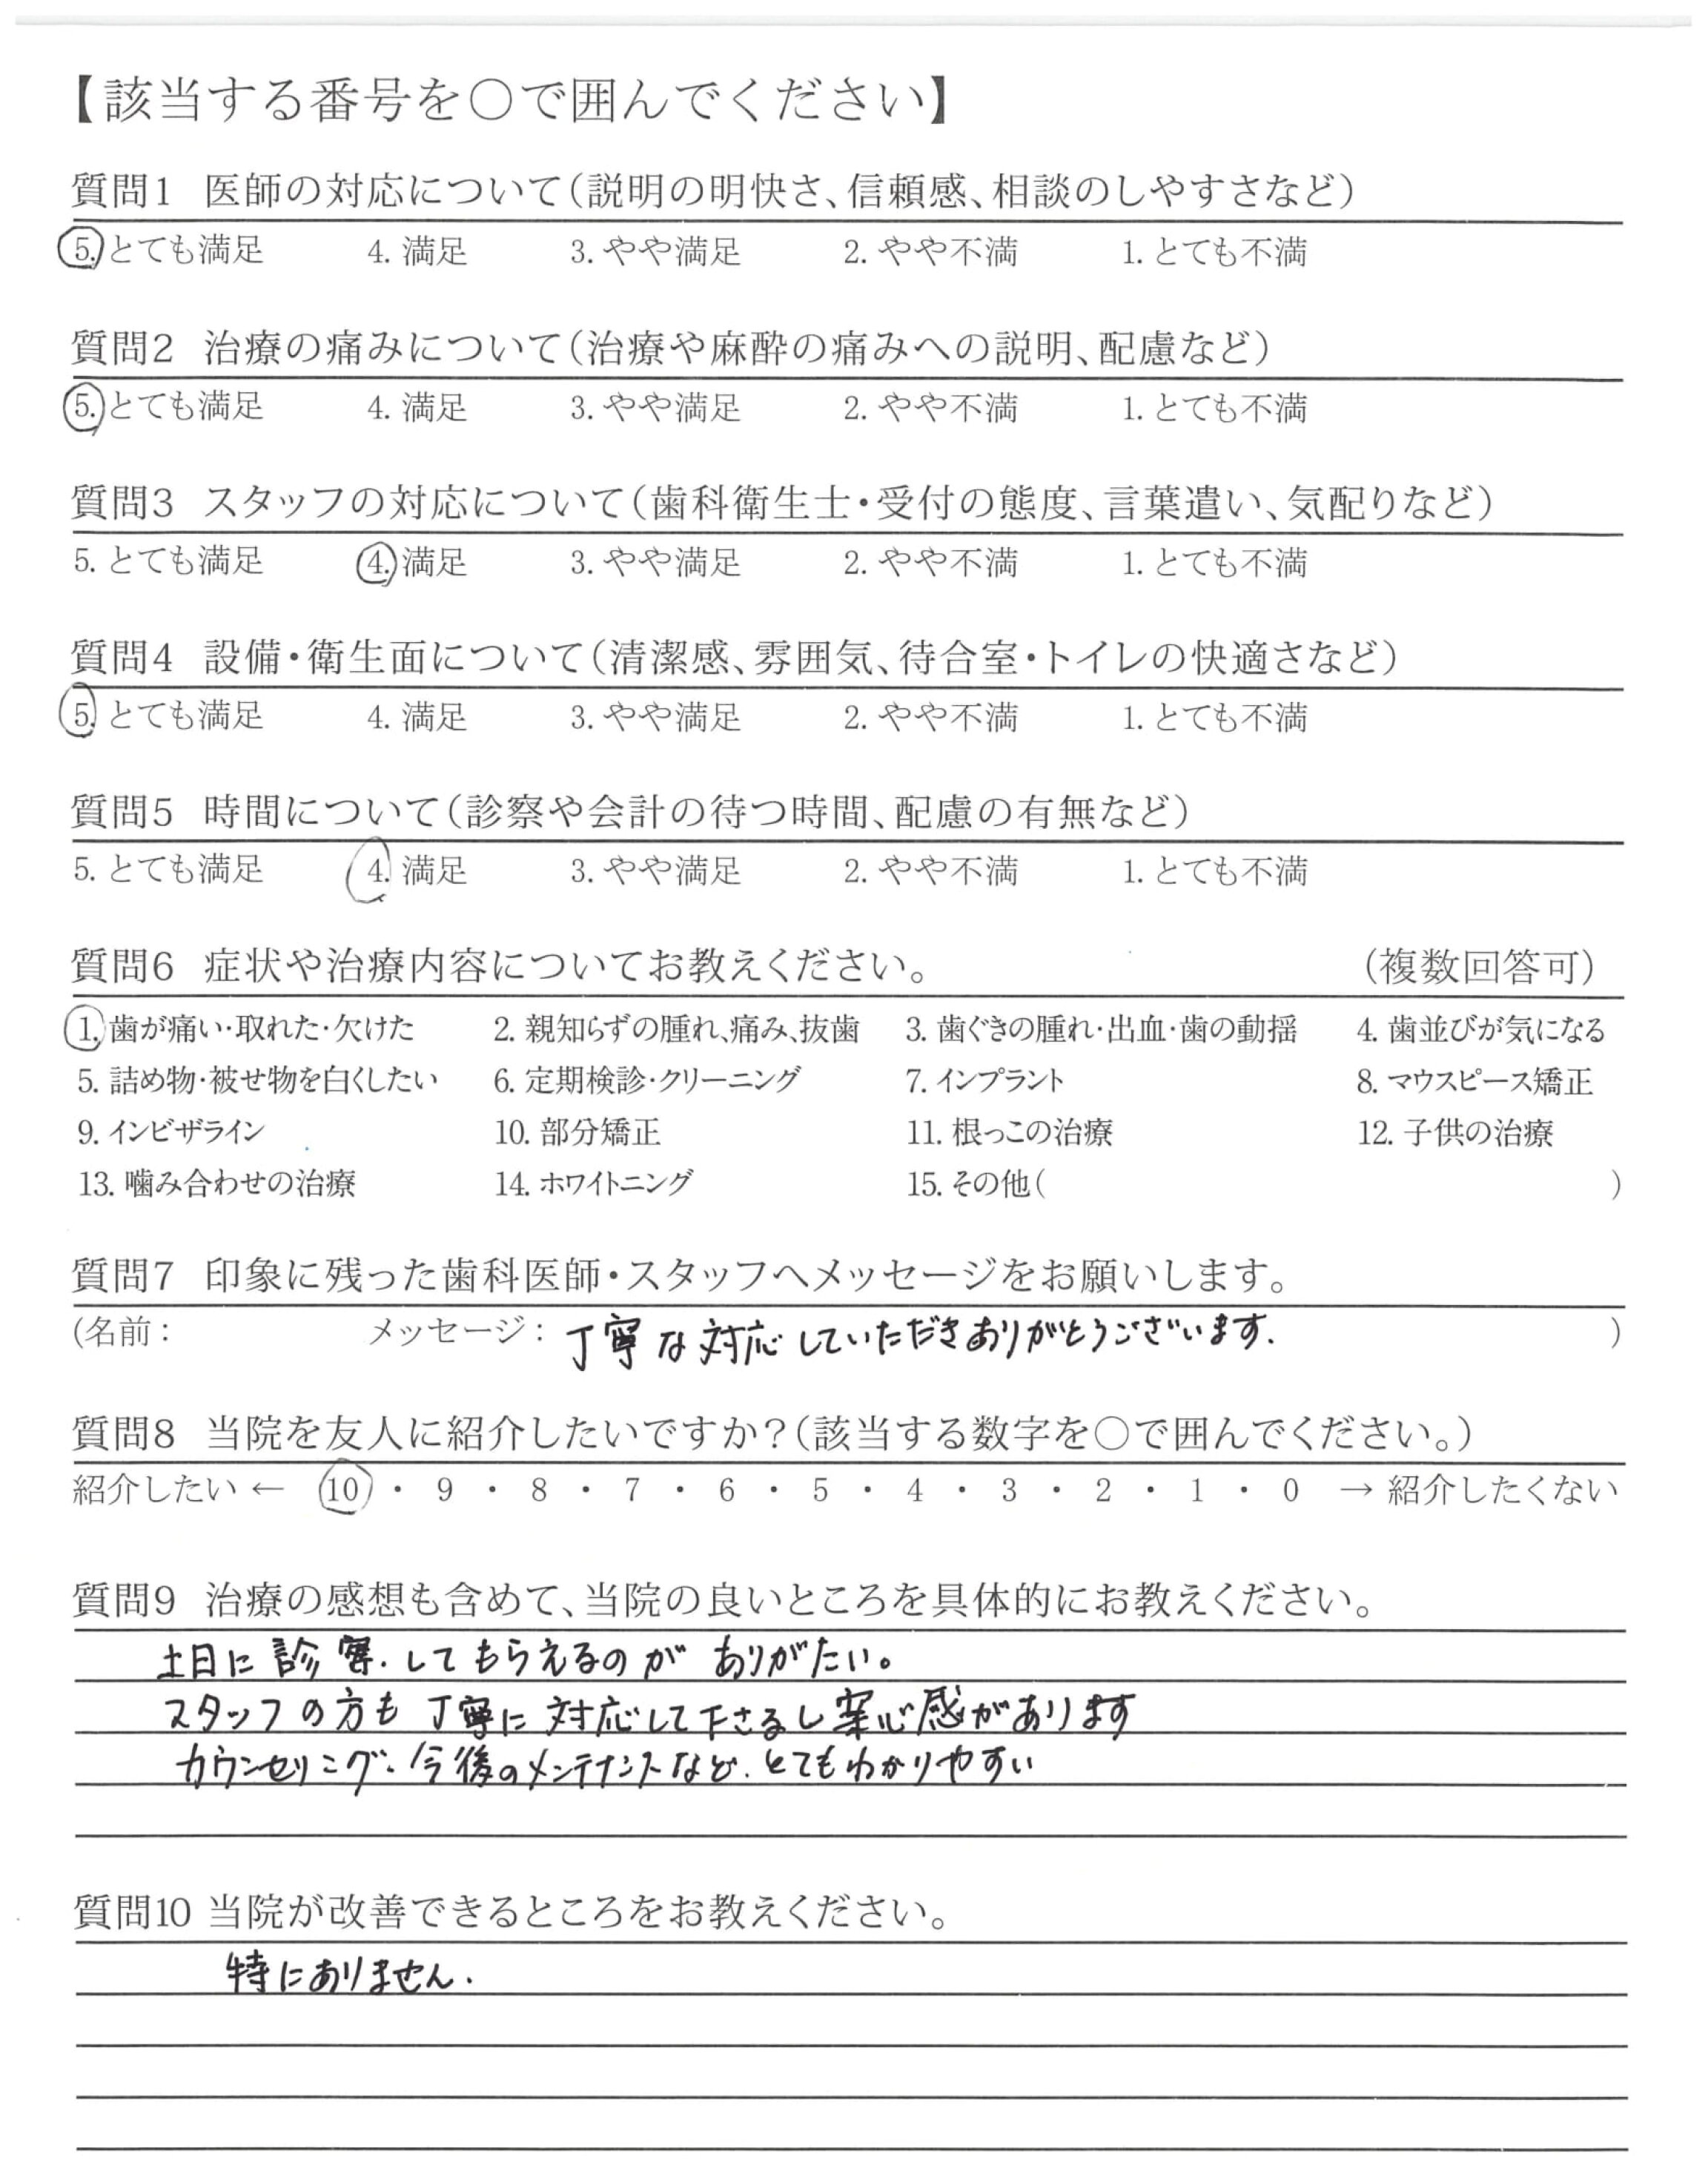 【該当する番号を○で囲んでください】
質問1 医師の対応について（説明の明快さ、信頼感、相談のしやすさなど）
5. とても満足 4. 満足 3. やや満足 2. やや不満 1. とても不満
質問2 治療の痛みについて（治療や麻酔の痛みへの説明、配慮など）
5. とても満足 4. 満足 3. やや満足 2. やや不満 1. とても不満
質問3 スタッフの対応について（歯科衛生士・受付の態度、言葉遣い、気配りなど）
5. とても満足 4. 満足 3. やや満足 2. やや不満 1. とても不満
質問4 設備・衛生面について（清潔感、雰囲気、待合室・トイレの快適さなど）
5. とても満足 4. 満足 3. やや満足 2. やや不満 1. とても不満
質問5 時間について（診察や会計の待つ時間、配慮の有無など）
5. とても満足 4. 満足 3. やや満足 2. やや不満 1. とても不満
質問6 症状や治療内容についてお教えください。 （複数回答可）
1. 歯が痛い・取れた・欠けた 2. 親知らずの腫れ、痛み、抜歯 3. 歯ぐきの腫れ・出血・歯の動揺 4. 歯並びが気になる
5. 詰め物・被せ物を白くしたい 6. 定期検診・クリーニング 7. インプラント 8. マウスピース矯正
9. インビザライン 10. 部分矯正 11. 根っこの治療 12. 子供の治療
13. 噛み合わせの治療 14. ホワイトニング 15. その他（ ）
質問7 印象に残った歯科医師・スタッフへメッセージをお願いします。
(名前： メッセージ：丁寧な対応していただきありがとうございます. )
質問8 当院を友人に紹介したいですか？（該当する数字を○で囲んでください。）
紹介したい ← 10 ・ 9 ・ 8 ・ 7 ・ 6 ・ 5 ・ 4 ・ 3 ・ 2 ・ 1 ・ 0 → 紹介したくない
質問9 治療の感想も含めて、当院の良いところを具体的にお教えください。
土日に診察.してもらえるのがありがたい。
スタッフの方も丁寧に対応して下さるし安心感があります
カウンセリング.今後のメンテナンスなど.とてもわかりやすい
質問10 当院が改善できるところをお教えください。
特にありません.